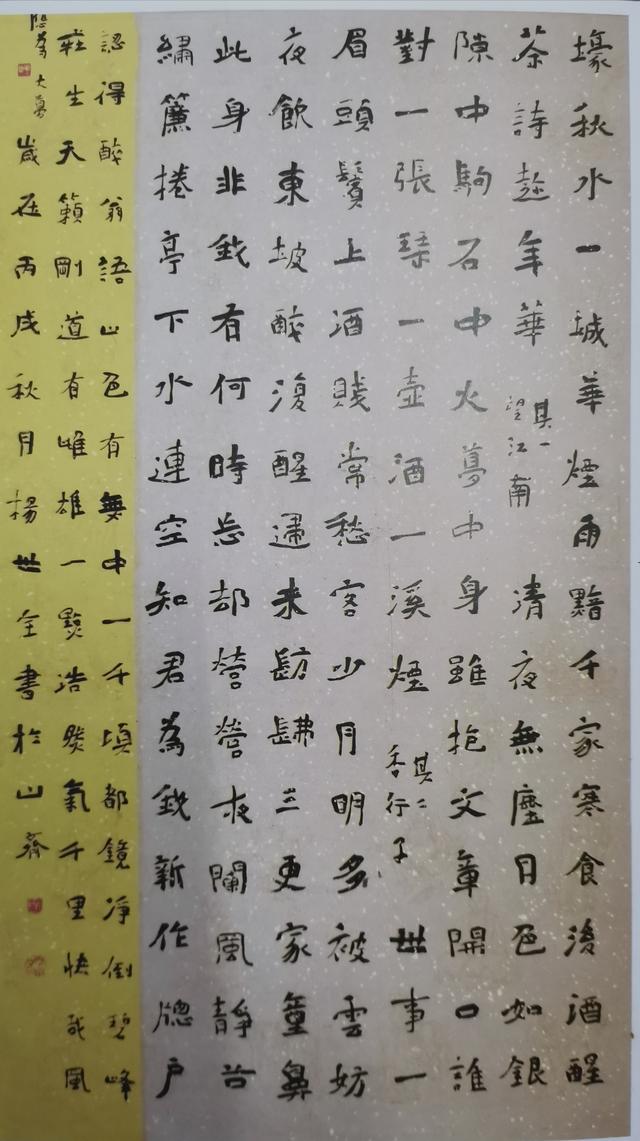 壕秋水一城華煙雨黯千家寒食後酒醒
茶詩趁年華 其一 望江南 清夜無塵月色如銀
隙中駒石中火夢中身雖抱文章開口誰
對一張琴一壺酒一溪煙 其二 香行子 世事一
眉頭鬢上酒賤常愁客少月明多被雲妨
夜飲東坡醉復醒歸來髣髴三更家童鼻
此身非我有何時忘却營營夜闌風靜
繡簾捲亭下水連空知君為我新作牕戶
認得醉翁語山色有無中一千頃都鏡淨倒碧峰
莊生天籟剛道有雌雄一點浩然氣千里快哉風
大勇 歲在丙戌秋月揚世全書於山齋